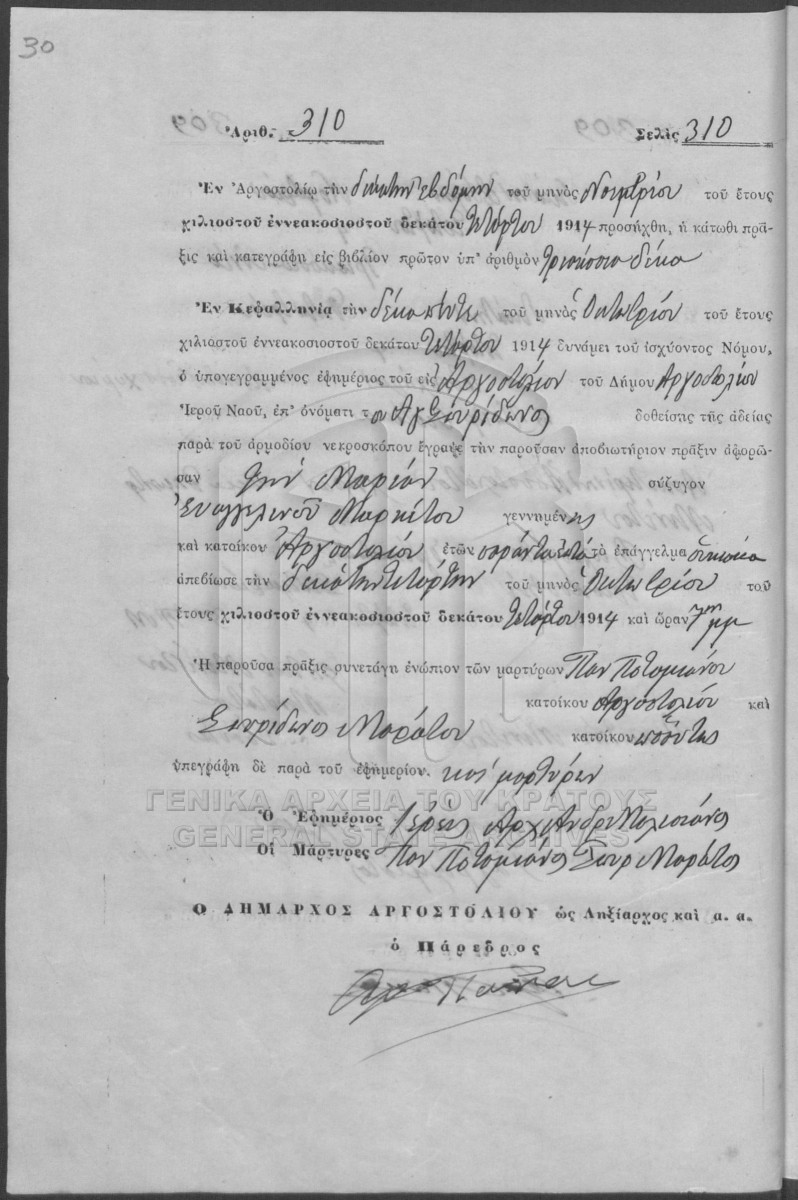 30
Ἀριθ. 310 Σελὶς 310
Ἐν Ἀργοστολίῳ τὴν δεκάτην ἑβδόμην τοῦ μηνὸς Νοεμβρίου τοῦ ἔτους
χιλιοστοῦ ἐννεακοσιοστοῦ δεκάτου τετάρτου 1914 προσήχθη, ἡ κάτωθι πρᾶ-
ξις καὶ κατεγράφη εἰς βιβλίον πρῶτον ὑπ' ἀριθμὸν τριακόσια δέκα
Ἐν Κεφαλληνίᾳ τὴν δέκα πέντε τοῦ μηνὸς Ὀκτωβρίου τοῦ ἔτους
χιλιοστοῦ ἐννεακοσιοστοῦ δεκάτου τετάρτου 1914 δυνάμει τοῦ ἰσχύοντος Νόμου,
ὁ ὑπογεγραμμένος ἐφημέριος τοῦ εἰς Ἀργοστόλιον τοῦ Δήμου Ἀργοστολίου
Ἱεροῦ Ναοῦ, ἐπ' ὀνόματι τοῦ Ἁγ Σπυρίδωνος δοθείσης τῆς ἀδείας
παρὰ τοῦ ἁρμοδίου νεκροσκόπου ἔγραψε τὴν παροῦσαν ἀποβιωτήριον πρᾶξιν ἀφορῶ-
σαν τὴν Μαρίαν σύζυγον
Εὐαγγελινοῦ Μαρκέτου γεννημένης
καὶ κατοίκου Ἀργοστολίου ἐτῶν σαράντα ἑπτά τὸ ἐπάγγελμα οἰκιακά
ἀπεβίωσε τὴν δεκάτην τετάρτην τοῦ μηνὸς Ὀκτωβρίου τοῦ
ἔτους χιλιοστοῦ ἐννεακοσιοστοῦ δεκάτου τετάρτου 1914 καὶ ὥραν 7ην μμ
Ἡ παροῦσα πρᾶξις συνετάγη ἐνώπιον τῶν μαρτύρων Παν Ποταμιάνου
κατοίκου Ἀργοστολίου καὶ
Σπυρίδωνος Μαράτου κατοίκου ὡσαύτως
ὑπεγράφη δὲ παρὰ τοῦ ἐφημερίου. καὶ μαρτύρων
ΓΕΝΙΚΑ ΑΡΧΕΙΑ ΤΟΥ ΚΡΑΤΟΥΣ
Ὁ Ἐφημέριος Ἱερεὺς
GENERAL STATE ARCHIVES
Οἱ Μάρτυρες Παν Ποταμιάνος Σπυρ Μαράτος
Ο ΔΗΜΑΡΧΟΣ ΑΡΓΟΣΤΟΛΙΟΥ ὡς Ληξίαρχος καὶ α. α.
ὁ Πάρεδρος